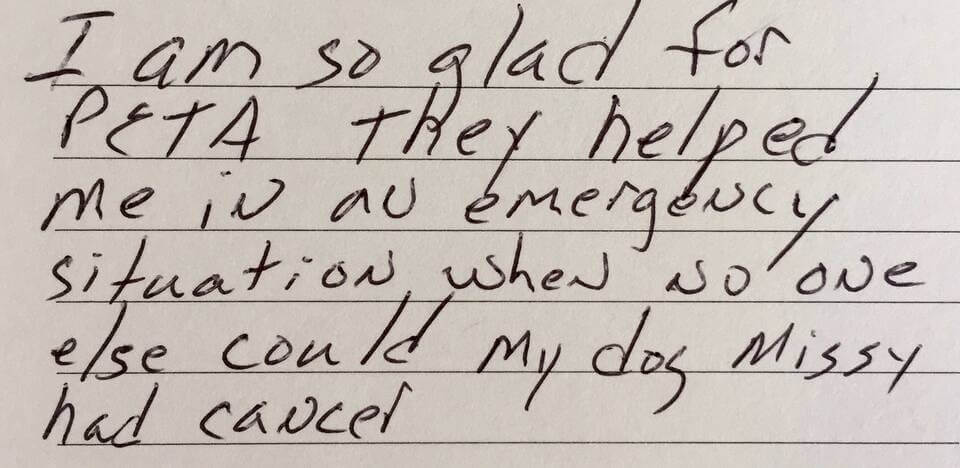 I am so glad for
PETA they helped
me in an emergency
situation, when no one
else could My dog Missy
had cancer